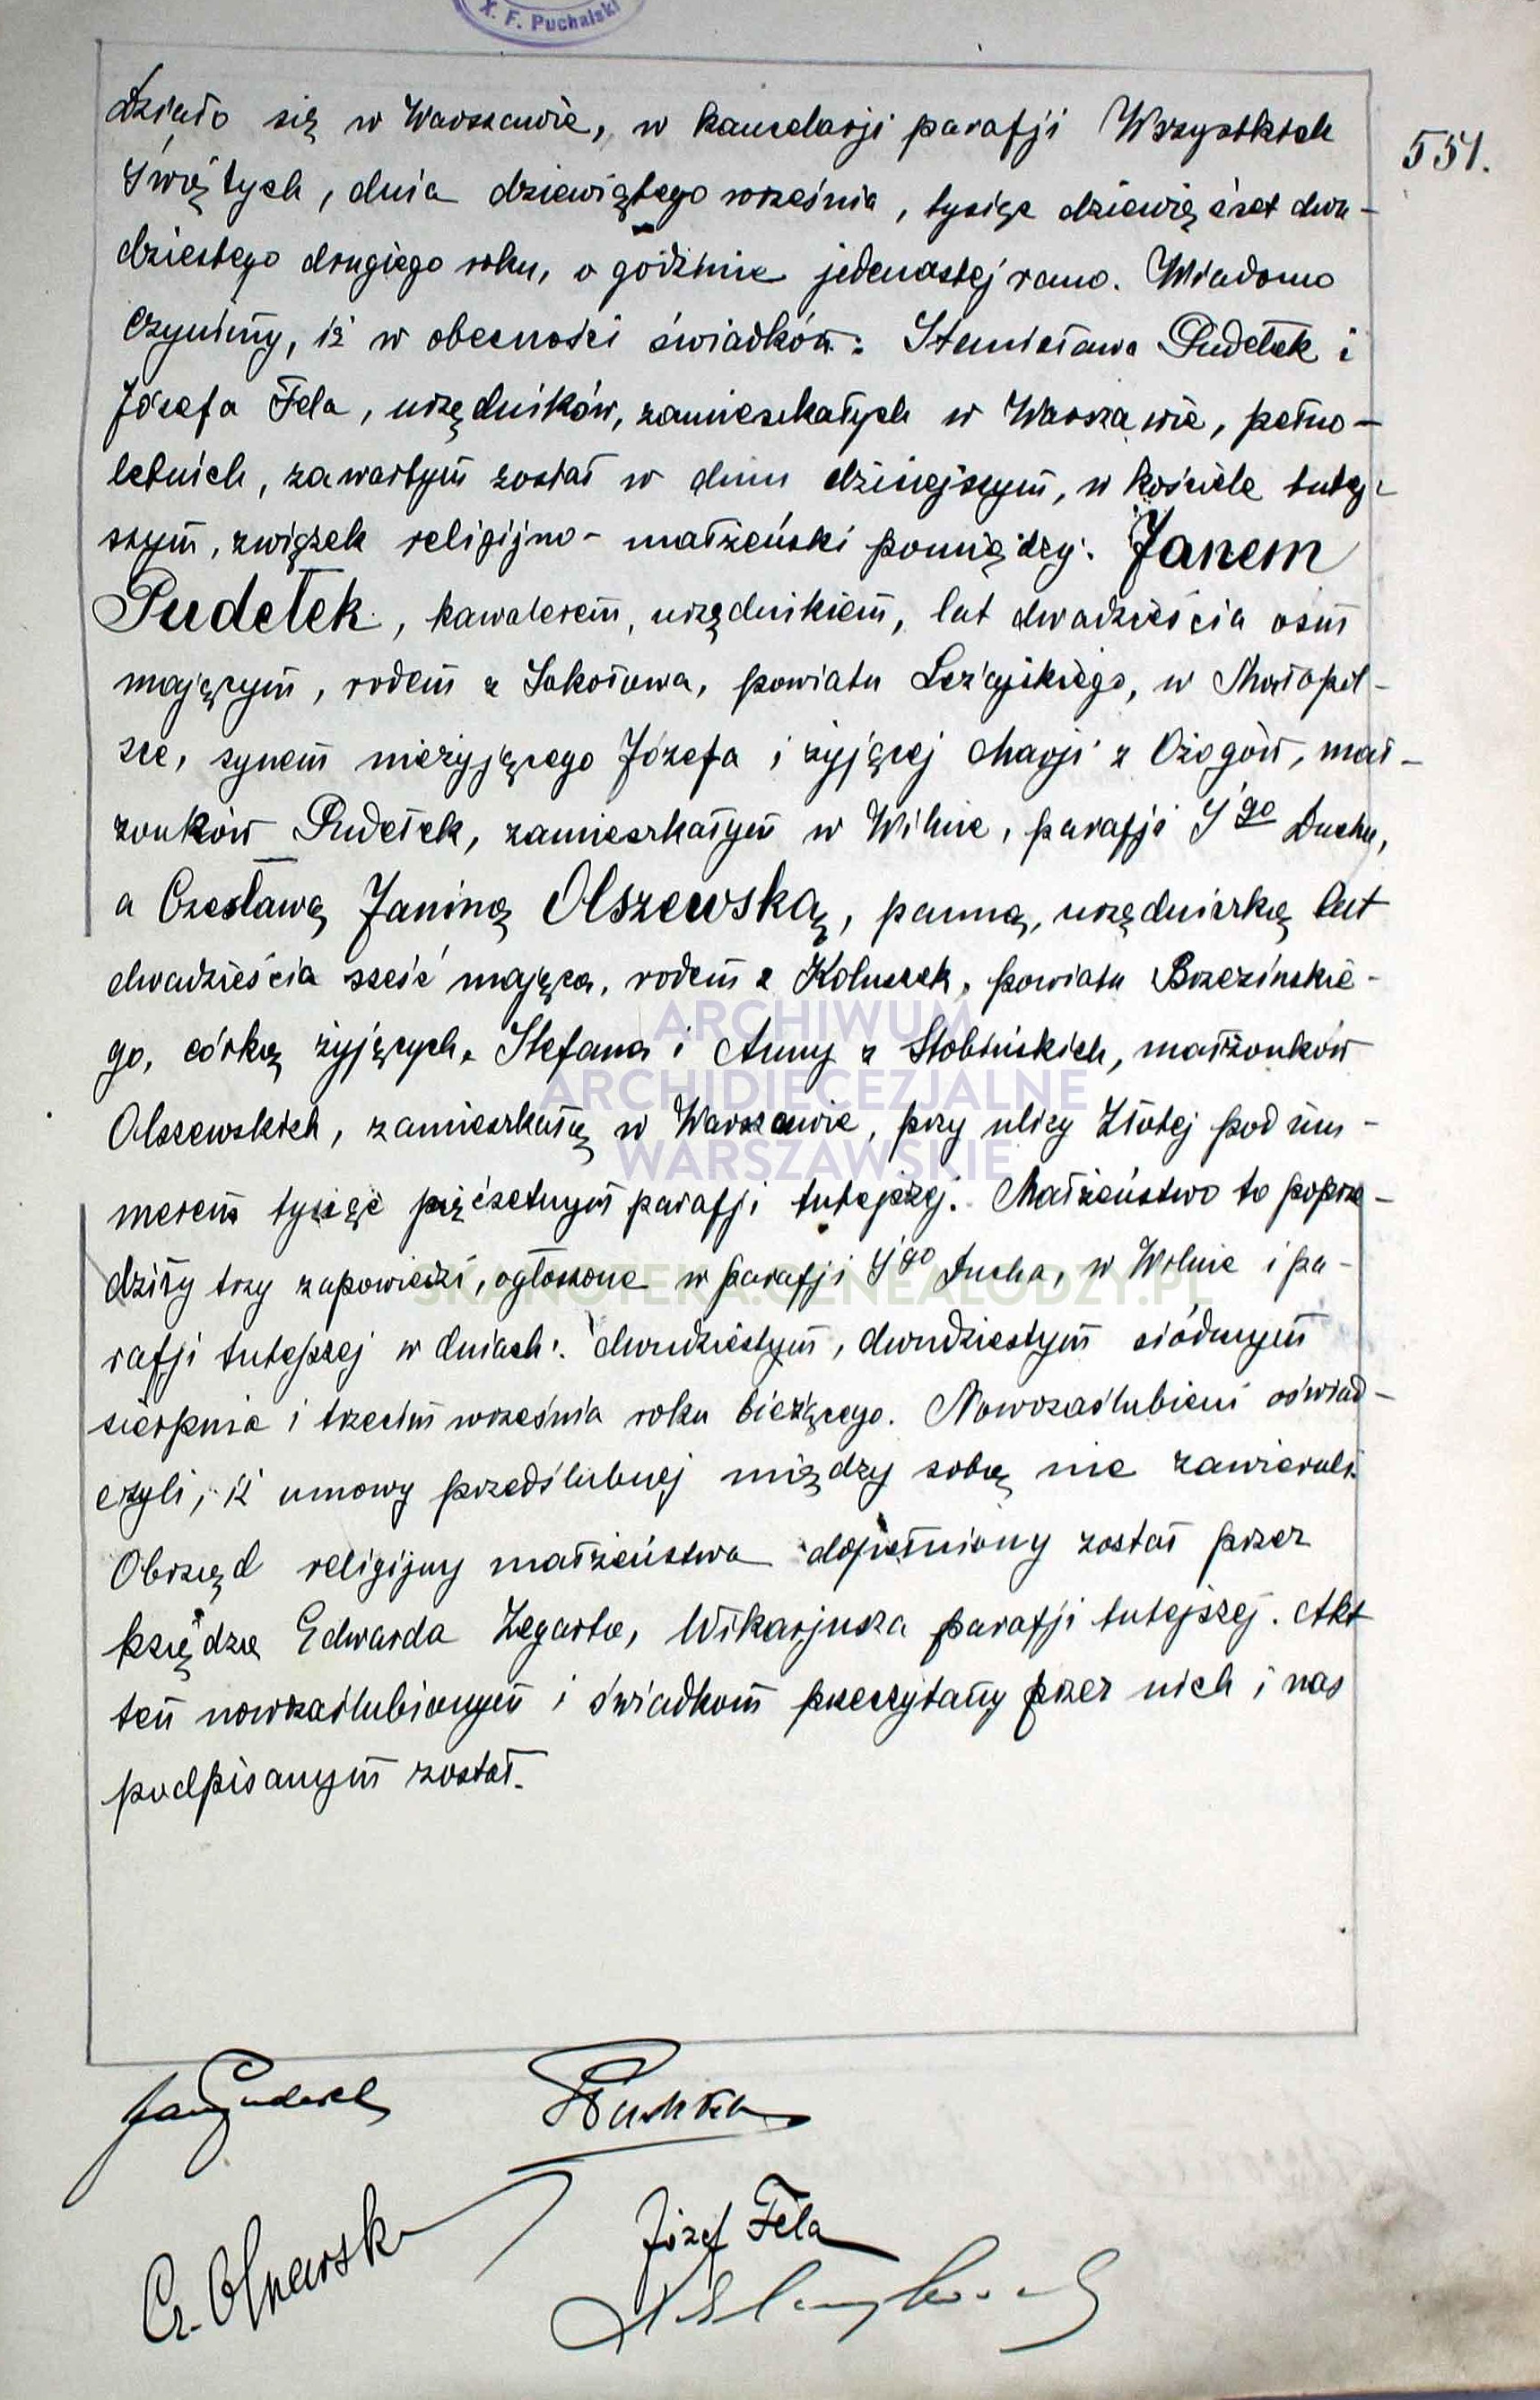 X. F. Puchalski
Działo się w Warszawie, w kancelarji parafji Wszystkich
551.
Świętych, dnia dziewiątego września, tysiąc dziewięćset dwu-
dziestego drugiego roku, o godzinie jedenastej rano. Wiadomo
czynimy, iż w obecności świadków: Stanisława Pudełek i
Józefa Fela, urzędników, zamieszkałych w Warszawie, pełno-
letnich, zawartym został w dniu dzisiejszym, w kościele tutej-
szym, związek religijno-małżeński pomiędzy: Janem
Pudełek, kawalerem, urzędnikiem, lat dwadzieścia ośm
mającym, rodem z Sokołowa, powiatu Leżajskiego, w Małopol-
sce, synem nieżyjącego Józefa i żyjącej Marji z Ożogów, mał-
żonków Pudełek, zamieszkałym w Wilnie, parafji Sgo Ducha,
a Czesławą Janiną Olszewską, panną, urzędniczką lat
dwadzieścia sześć mającą, rodem z Koluszek, powiatu Brzezińskie-
go, córką żyjących, Stefana i Anny z Słobińskich, małżonków
Olszewskich, zamieszkałą w Warszawie, przy ulicy Złotej pod nu-
merem tysiąc pięćsetnym parafji tutejszej. Małżeństwo to poprze-
dziły trzy zapowiedzi, ogłoszone w parafji Sgo Ducha, w Wilnie i pa-
rafji tutejszej w dniach: dwudziestym, dwudziestym siódmym
sierpnia i trzecim września roku bieżącego. Nowozaślubieni oświad-
czyli, iż umowy przedślubnej między sobą nie zawierali.
Obrzęd religijny małżeństwa dopełniony został przez
księdza Edwarda Zegarta, Wikarjusza parafji tutejszej. Akt
ten nowozaślubionym i świadkom przeczytany przez nich i nas
podpisanym został.
Jan Pudełek
Cz. Olszewska
Józef Fela
ARCHIWUM
ARCHIDIECEZJALNE
WARSZAWSKIE
SKANOTEKA.GENEALODZY.PL